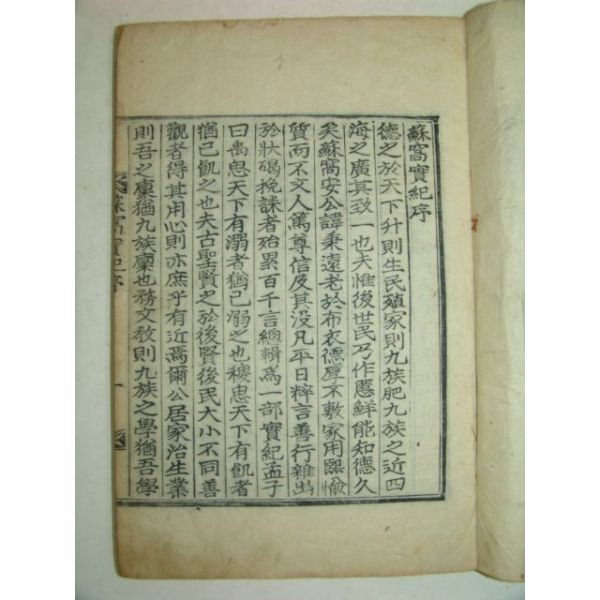 蘇窩實紀序
德之於天下升則生民殖家則九族肥九族之近四
海之廣其致一也夫惟後世民乃作慝鮮能知德久
矣蘇窩安公諱秉遠老於布衣德厚不敷家用熙愉
質而不文人篤尊信及其沒凡平日粹言善行雜出
於狀碣挽誄者殆累百千言總輯爲一部實紀孟子
曰禹思天下有溺者猶己溺之也稷思天下有飢者
猶己飢之也夫古聖賢之於後賢後民大小不同善
觀者得其用心則亦庶乎有近焉爾公居家治生業
則吾之稟猶九族稟也務文教則九族之學猶吾學
蘇窩實紀序
一